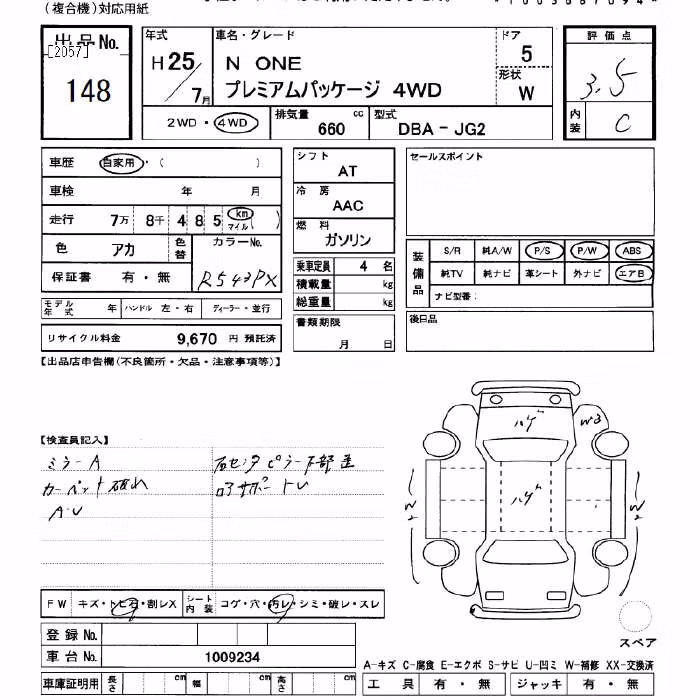 （複合機）対応用紙
出品No. [2057] 148
年式 H25/7月
車名・グレード N ONE プレミアムパッケージ 4WD
ドア 5
形状 W
評価点 3.5
内装 C
2WD・4WD
排気量 660 cc
型式 DBA-JG2
車歴 自家用・（ ）
車検 年 月
走行 7万 8千 4 8 5 km マイル（ ）
色 アカ 色替 カラーNo. R543PX
保証書 有・無
モデル年式 年 ハンドル 左・右 ディーラー・並行
リサイクル料金 9,670 円 預託済
シフト AT
冷房 AAC
燃料 ガソリン
乗車定員 4 名
積載量 kg
総重量 kg
書類期限 月 日
セールスポイント
装備品 S/R 純A/W P/S P/W ABS
純TV 純ナビ 革シート 外ナビ エアB
ナビ型番：
後日品
【出品店申告欄（不良箇所・欠品・注意事項等）】
【検査員記入】
ミラーA
カーペット破れ
A・U
右センタピラー下部歪
ロアサポートU
ハゲ
W3
ハゲ
W2
W2
FW キズ・トビ石・割レX シート内装 コゲ・穴・汚レ・シミ・破レ・スレ
登録No.
車台No. 1009234
車庫証明用 長さ cm 幅 cm 高さ cm
スペア
A-キズ C-腐食 E-エクボ S-サビ U-凹ミ W-補修 XX-交換済
工具 有・無 ジャッキ 有・無